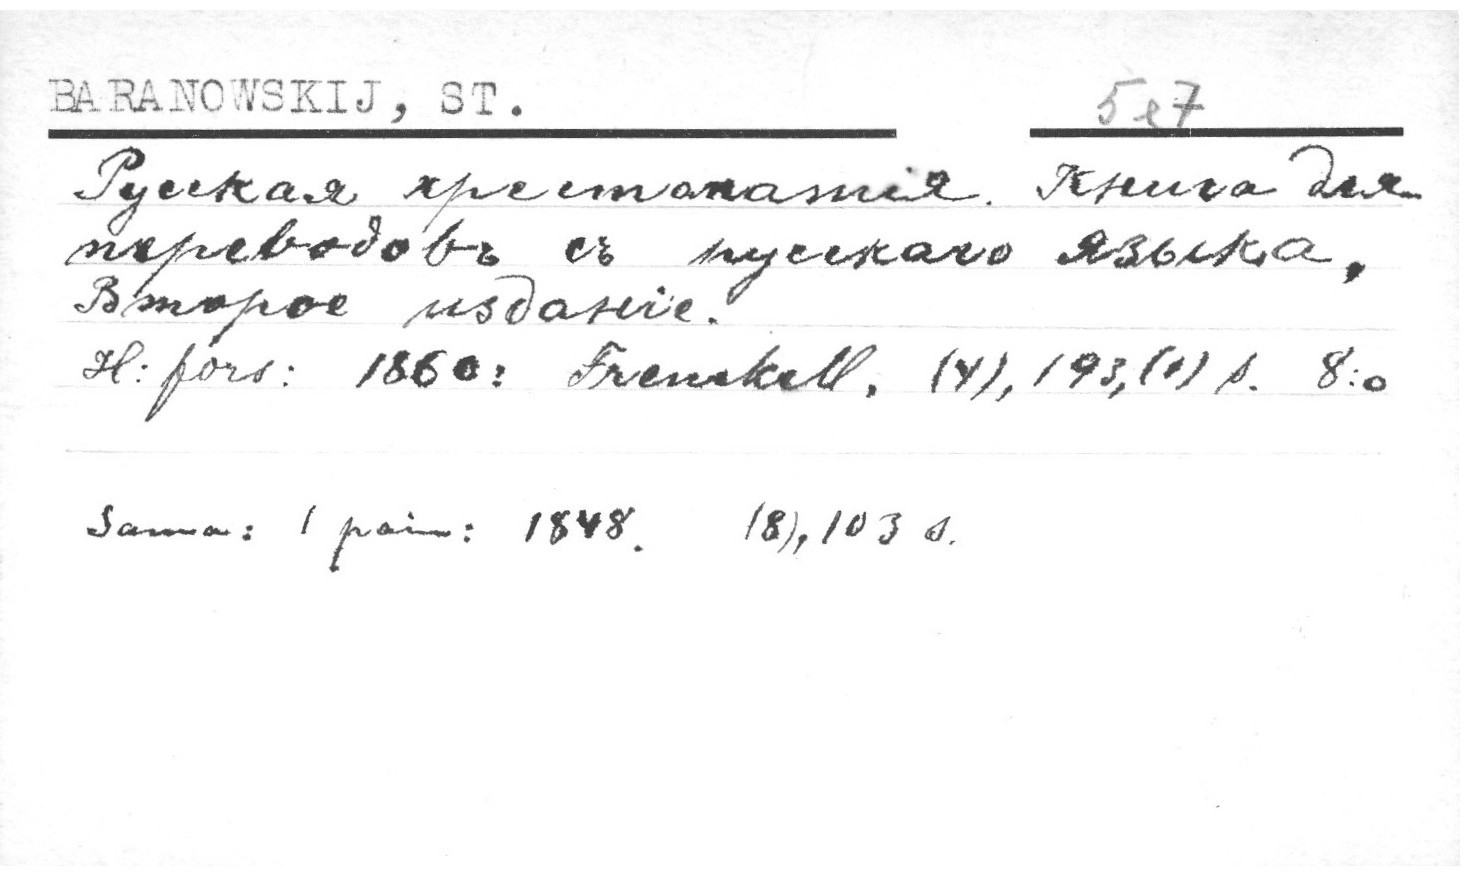 BARANOWSKIJ, ST.
5e7
Русская хрестоматія. Книга для
переводовъ съ русскаго языка,
Второе изданіе.
H:fors: 1860: Frenckell, (4), 193, (1) s. 8:o
Sama: 1 pain: 1848. (8), 103 s.